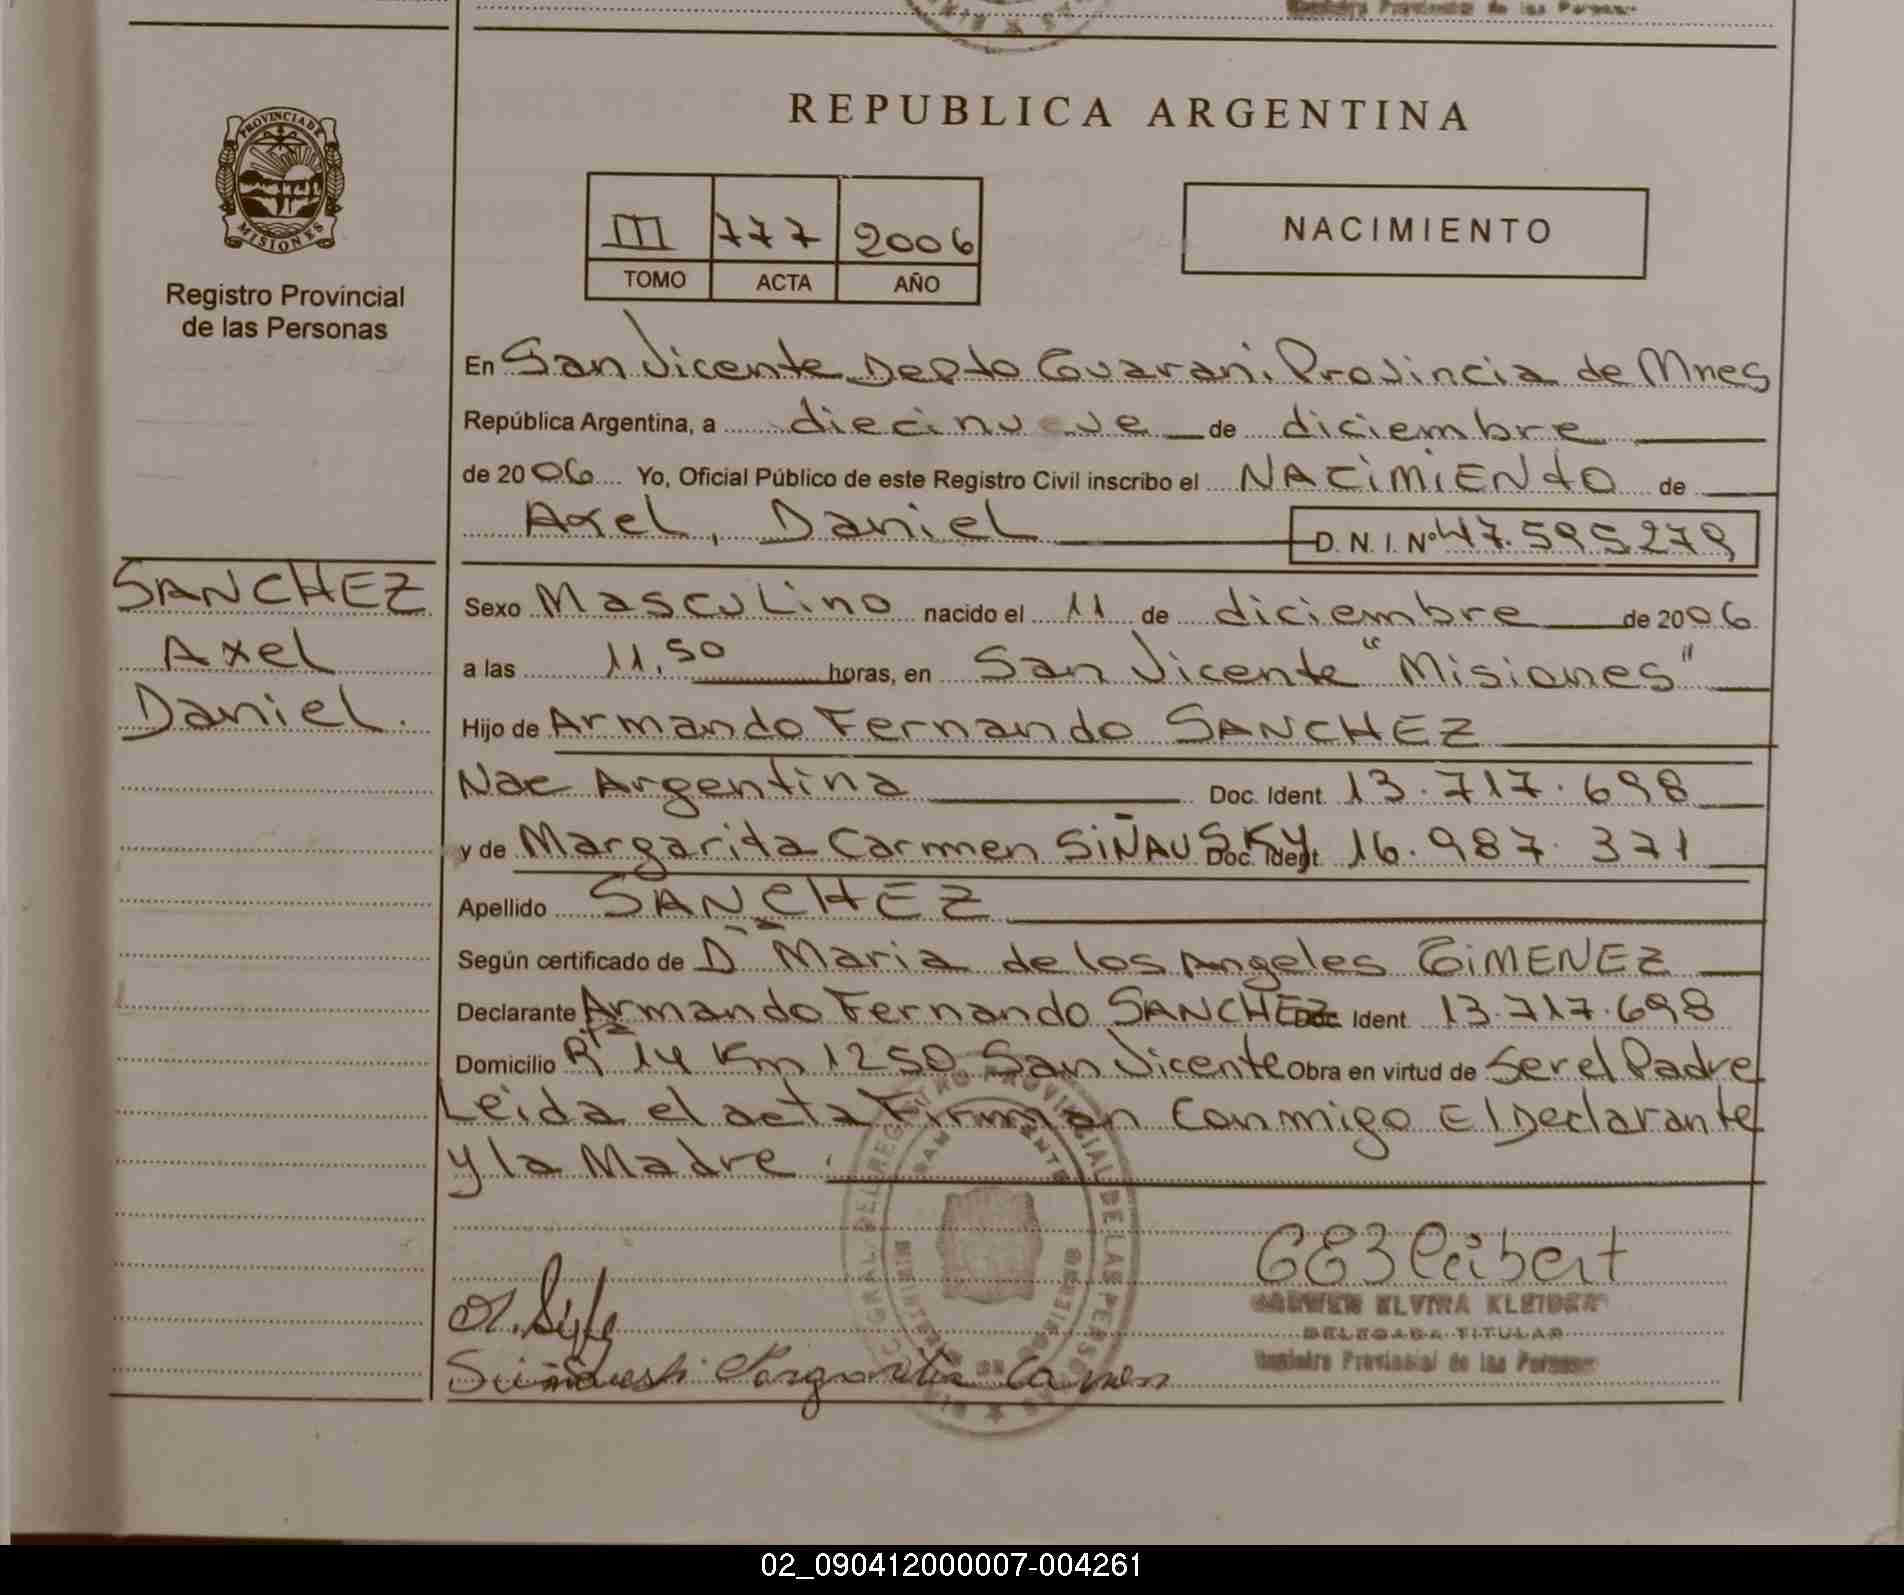 Registro Provincial de las Personas
PROVINCIA DE
MISIONES
Registro Provincial
de las Personas
REPUBLICA ARGENTINA
III 777 2006
TOMO ACTA AÑO
NACIMIENTO
En San Vicente Depto Guarani. Provincia de Mnes
República Argentina, a diecinueve de diciembre
de 2006 Yo, Oficial Público de este Registro Civil inscribo el NACIMIENTO de
Axel, Daniel D. N. I. Nº 47.595279
SANCHEZ
Axel
Daniel.
Sexo Masculino nacido el 11 de diciembre de 2006
a las 11,50 horas, en San Vicente "Misiones"
Hijo de Armando Fernando SANCHEZ
Nac Argentina Doc. Ident. 13.717.698
y de Margarita Carmen SiÑAUSKY Doc. Ident. 16.987.371
Apellido SANCHEZ
Según certificado de Dra Maria de los Angeles GiMENEZ
Declarante Armando Fernando SANCHEZ Doc. Ident. 13.717.698
Domicilio Rta 14 Km 1250 San Vicente Obra en virtud de Ser el Padre
Leida el acta Firman Conmigo El Declarante
y la Madre.
REGISTRO PROVINCIAL DE LAS PERSONAS
Margarita Carmen
DELEGADA TITULAR
Registro Provincial de las Personas
02_090412000007-004261